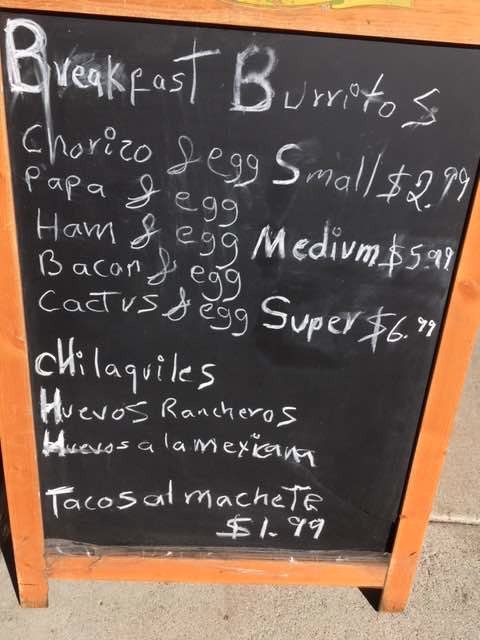 Breakfast Burritos
Chorizo & egg Small $2.99
Papa & egg
Ham & egg Medium $5.99
Bacon & egg
Cactus & egg Super $6.99
cHilaquiles
Huevos Rancheros
Huevos a la mexicana
Tacos al macheTe
$1.99